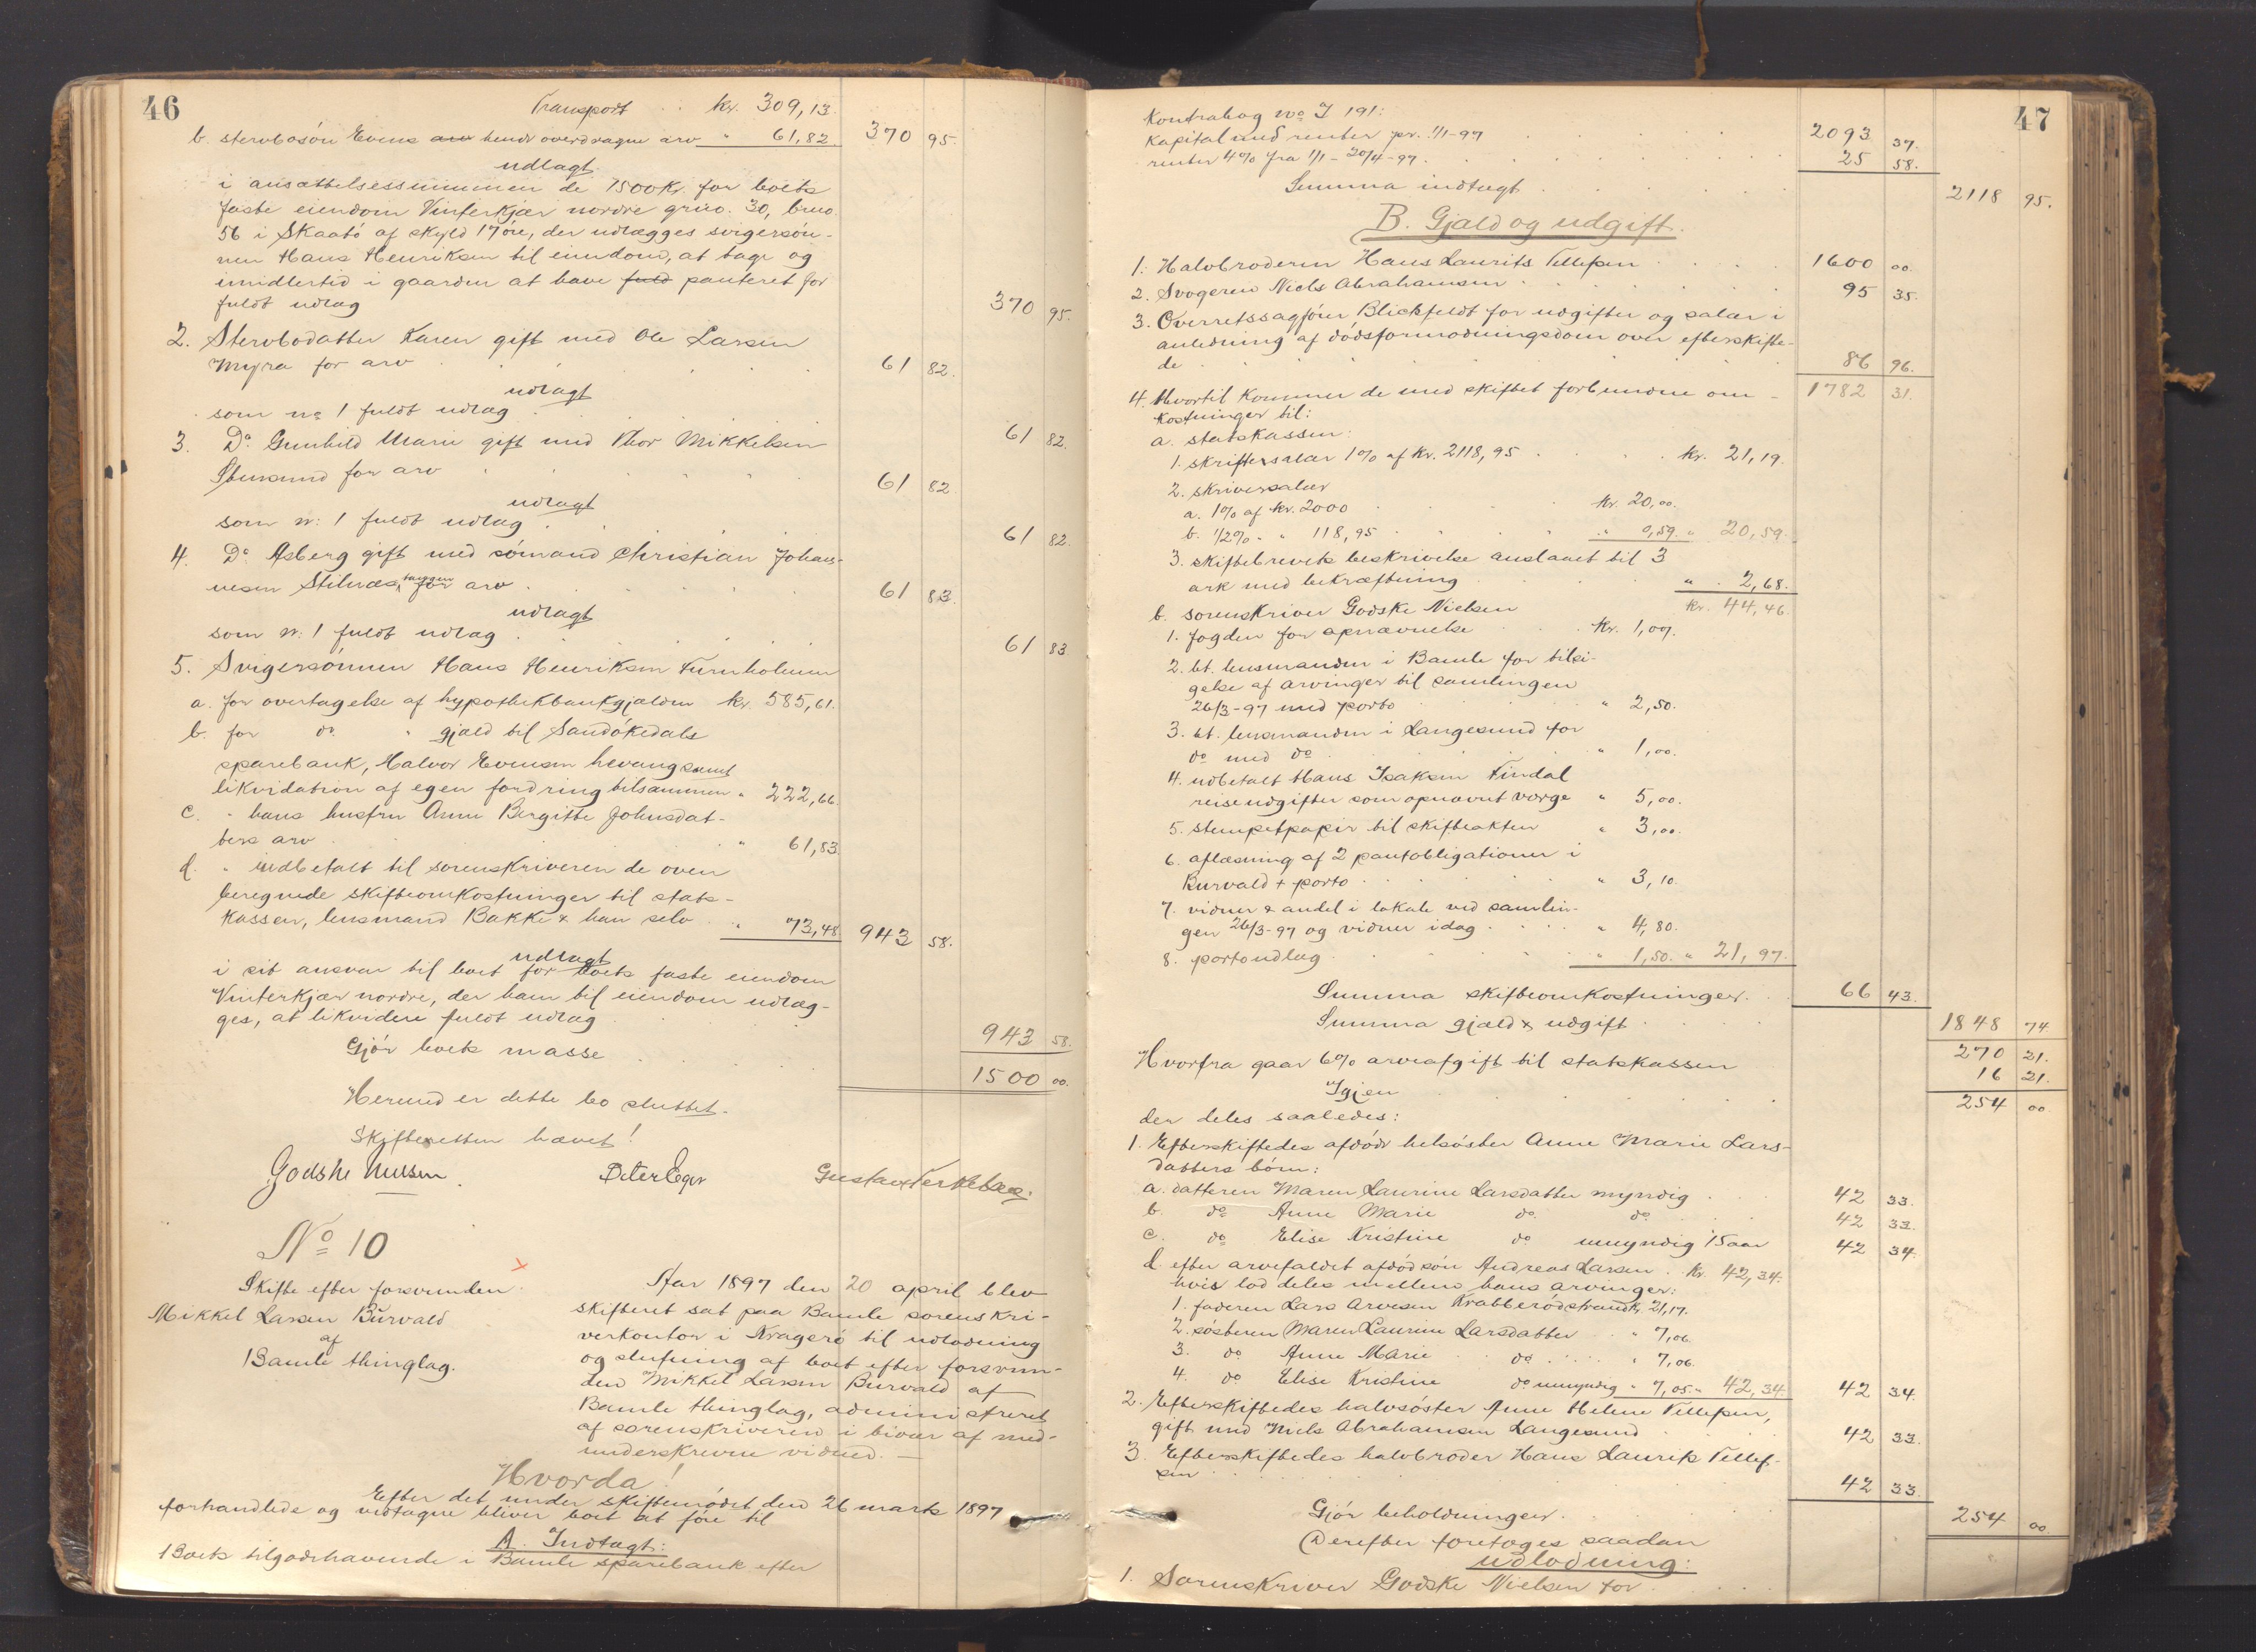 46
Transport . . kr. 309,13
b. stervbosön Evens arv hende overdragne arv " 61,82. 370 95.
udlagt
i ansættelsessummen de 1500 Kr. for boets
faste eiendom Vinterkjær nordre grno. 30, brno.
56 i Skaatö af skyld 17 öre, der udlægges svigersön-
nen Hans Henriksen til eiendom, at tage og
imidlertid i gaarden at have fuld panteret for
fuldt udlæg 370 95.
2. Stervbodatter Karen gift med Ole Larsen
Myra for arv . . . . . 61 82.
udlagt
som no 1 fuldt udlæg . . . . 61 82.
3. Do. Gunhild Marie gift med Thor Mikkelsen
Stensund for arv . . . . 61 82
udlagt
som n: 1 fuldt udlæg . . . . 61 82.
4. Do Asberg gift med sömand Christian Johan-
nesen Stilnæs, for arv . . . . 61 83.
udlagt
som n: 1 fuldt udlæg . . . . 61 83
5. Svigersönnen Hans Henriksen Furuholmen
a. for overtagelse af hypothekbankgjælden kr. 585,61.
b. for do. " gjæld til Sandökedals
sparebank, Halvor Evensen hevang samt
likvidation af egen fordring tilsammen " 222,66.
c. " hans hustru Anne Birgitte Johnsdat-
ters arv . . . . " 61,83
d. " indbetalt til sorenskriveren de oven
beregnede skifteomkostninger til stats-
kassen, lensmand Bakke & han selv . " 73,48 943 58.
udlagt
i sit ansvar til boet for boets faste eiendom
Vinterkjær nordre, der ham til eiendom udlæg-
ges, at likvidere fuldt udlæg . . . 943 58.
Gjör boets masse . . . 1500 00.
Hermed er dette bo sluttet.
Skifteretten hævet!
Godske Nielsen. Peter Eger Gustav Terkelsen.
No 10
Skifte efter forsvunden
Mikkel Larsen Burvald
af
Bamle thinglag.
Aar 1897 den 20 april blev
skifteret sat paa Bamle sorenskri-
verkontor i Kragerö til udlodning
og slutning af boet efter forsvun-
den Mikkel Larsen Burvald af
Bamle thinglag, administreret
af sorenskriveren i bivær af med-
underskrevne vidner. —
Hvorda!
Efter det under skiftemödet den 26 marts 1897
forhandlede og vedtagne bliver boet at före til
A. Indtægt:
Boets tilgodehavende i Bamle sparebank efter
47
Kontrabog no I 191:
Kapital med renter pr. 1/1-97 . . . 2093 37.
renter 4% fra 1/1 - 20/4-97 . . . 25 58.
Summa indtægt . . . 2118 95.
B. Gjæld og udgift.
1. Halvbroderen Hans Laurits Tellefsen . . . 1600 00.
2. Svogeren Niels Abrahamsen . . . 95 35.
3. Overretssagförer Blichfeldt for udgifter og salær i
anledning af dödsformodningsdom over efterskifte-
de . . . . 86 96.
4. Hvortil kommer de med skiftet forbundne om- 1782 31.
kostninger til:
a. statskassen:
1. skiftesalær 1% af kr. 2118,95 . . . kr. 21,19.
2. skriversalær
a. 1% af kr. 2000 . . . kr. 20,00.
b. 1/2% " " 118,95 . . . " 0,59. " 20,59.
3. skiftebrevets beskrivelse anslaaet til 3
ark med bekræftning . . . " 2,68.
kr. 44,46.
b. sorenskriver Godske Nielsen
1. fogden for opnævnelse . . kr. 1,07.
2. bt. lensmanden i Bamle for tilsi-
gelse af arvinger til samlingen
26/3-97 med porto . . . " 2,50.
3. bt. lensmanden i Langesund for
do med do . . . " 1,00.
4. udbetalt Hans Isaksen Findal
reiseudgifter som opnævnt værge " 5,00.
5. stempelpapir til skifteakten " 3,00.
6. aflæsning af 2 pantobligationer i
Burvald + porto . . . " 3,10.
7. vidner & andel i lokale ved samlin-
gen 26/3-97 og vidner idag . . . " 4,80.
8. portoudlæg . . . " 1,50. " 21,97.
Summa skifteomkostninger. . 66 43.
Summa gjæld & udgift . . . 1848 74.
270 21.
Hvorfra gaar 6% arveafgift til statskassen 16 21.
Igjen . . . 254 00.
der deles saaledes:
1. Efterskiftedes afdöde helsöster Anne Marie Lars-
datters börn:
a. datteren Maren Laurine Larsdatter myndig . 42 33.
b. do Anne Marie do. do. . 42 33.
c. do Elise Kristine do umyndig 15 aar 42 34.
d. efter arvefaldet afdöd sön Andreas Larsen . kr. 42,34.
hvis lod deles mellem hans arvinger:
1. faderen Lars Arvesen Krabberödstrand kr. 21,17.
2. sösteren Maren Laurine Larsdatter . " 7,06.
3. do Anne Marie do . . . " 7,06.
4. do Elise Kristine do umyndig " 7,05. " 42,34 42 34.
2. Efterskiftedes halvsöster Anne Helene Tellefsen,
gift med Niels Abrahamsen Langesund . . 42 33.
3. Efterskiftedes halvbroder Hans Laurits Tellef-
sen . . . . 42 33.
Gjör beholdningen . . . 254 00.
Derefter foretages saadan
udlodning:
1. Sorenskriver Godske Nielsen for . . .